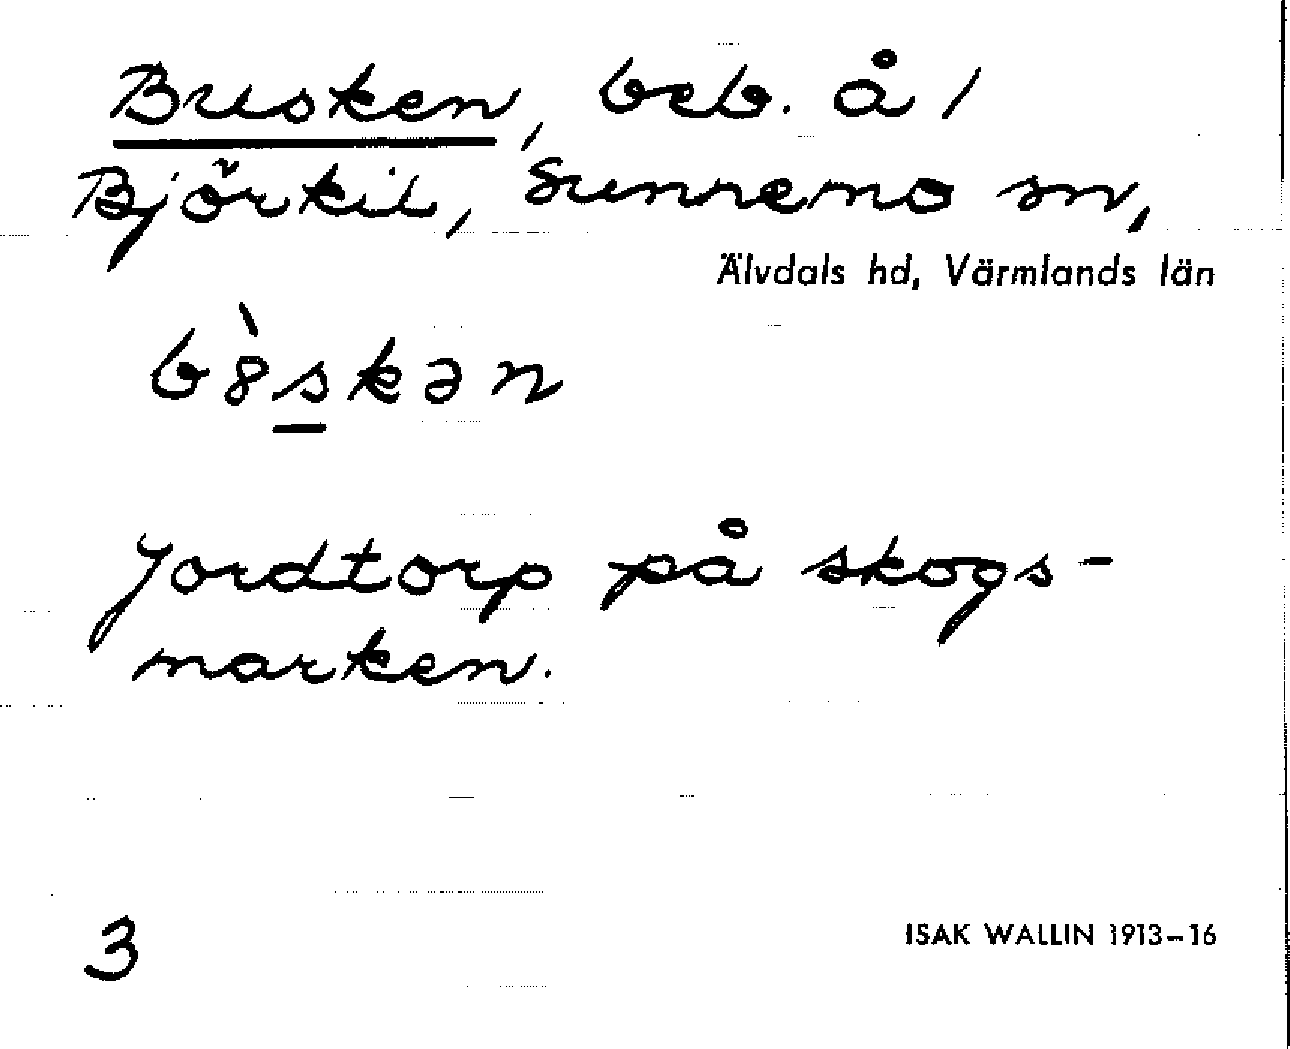 Busken, beb. å /
Björkil, Sunnemo sn,
Älvdals hd, Värmlands län
b8̀skən
Jordtorp på skogs-
marken.
3
ISAK WALLIN 1913-16